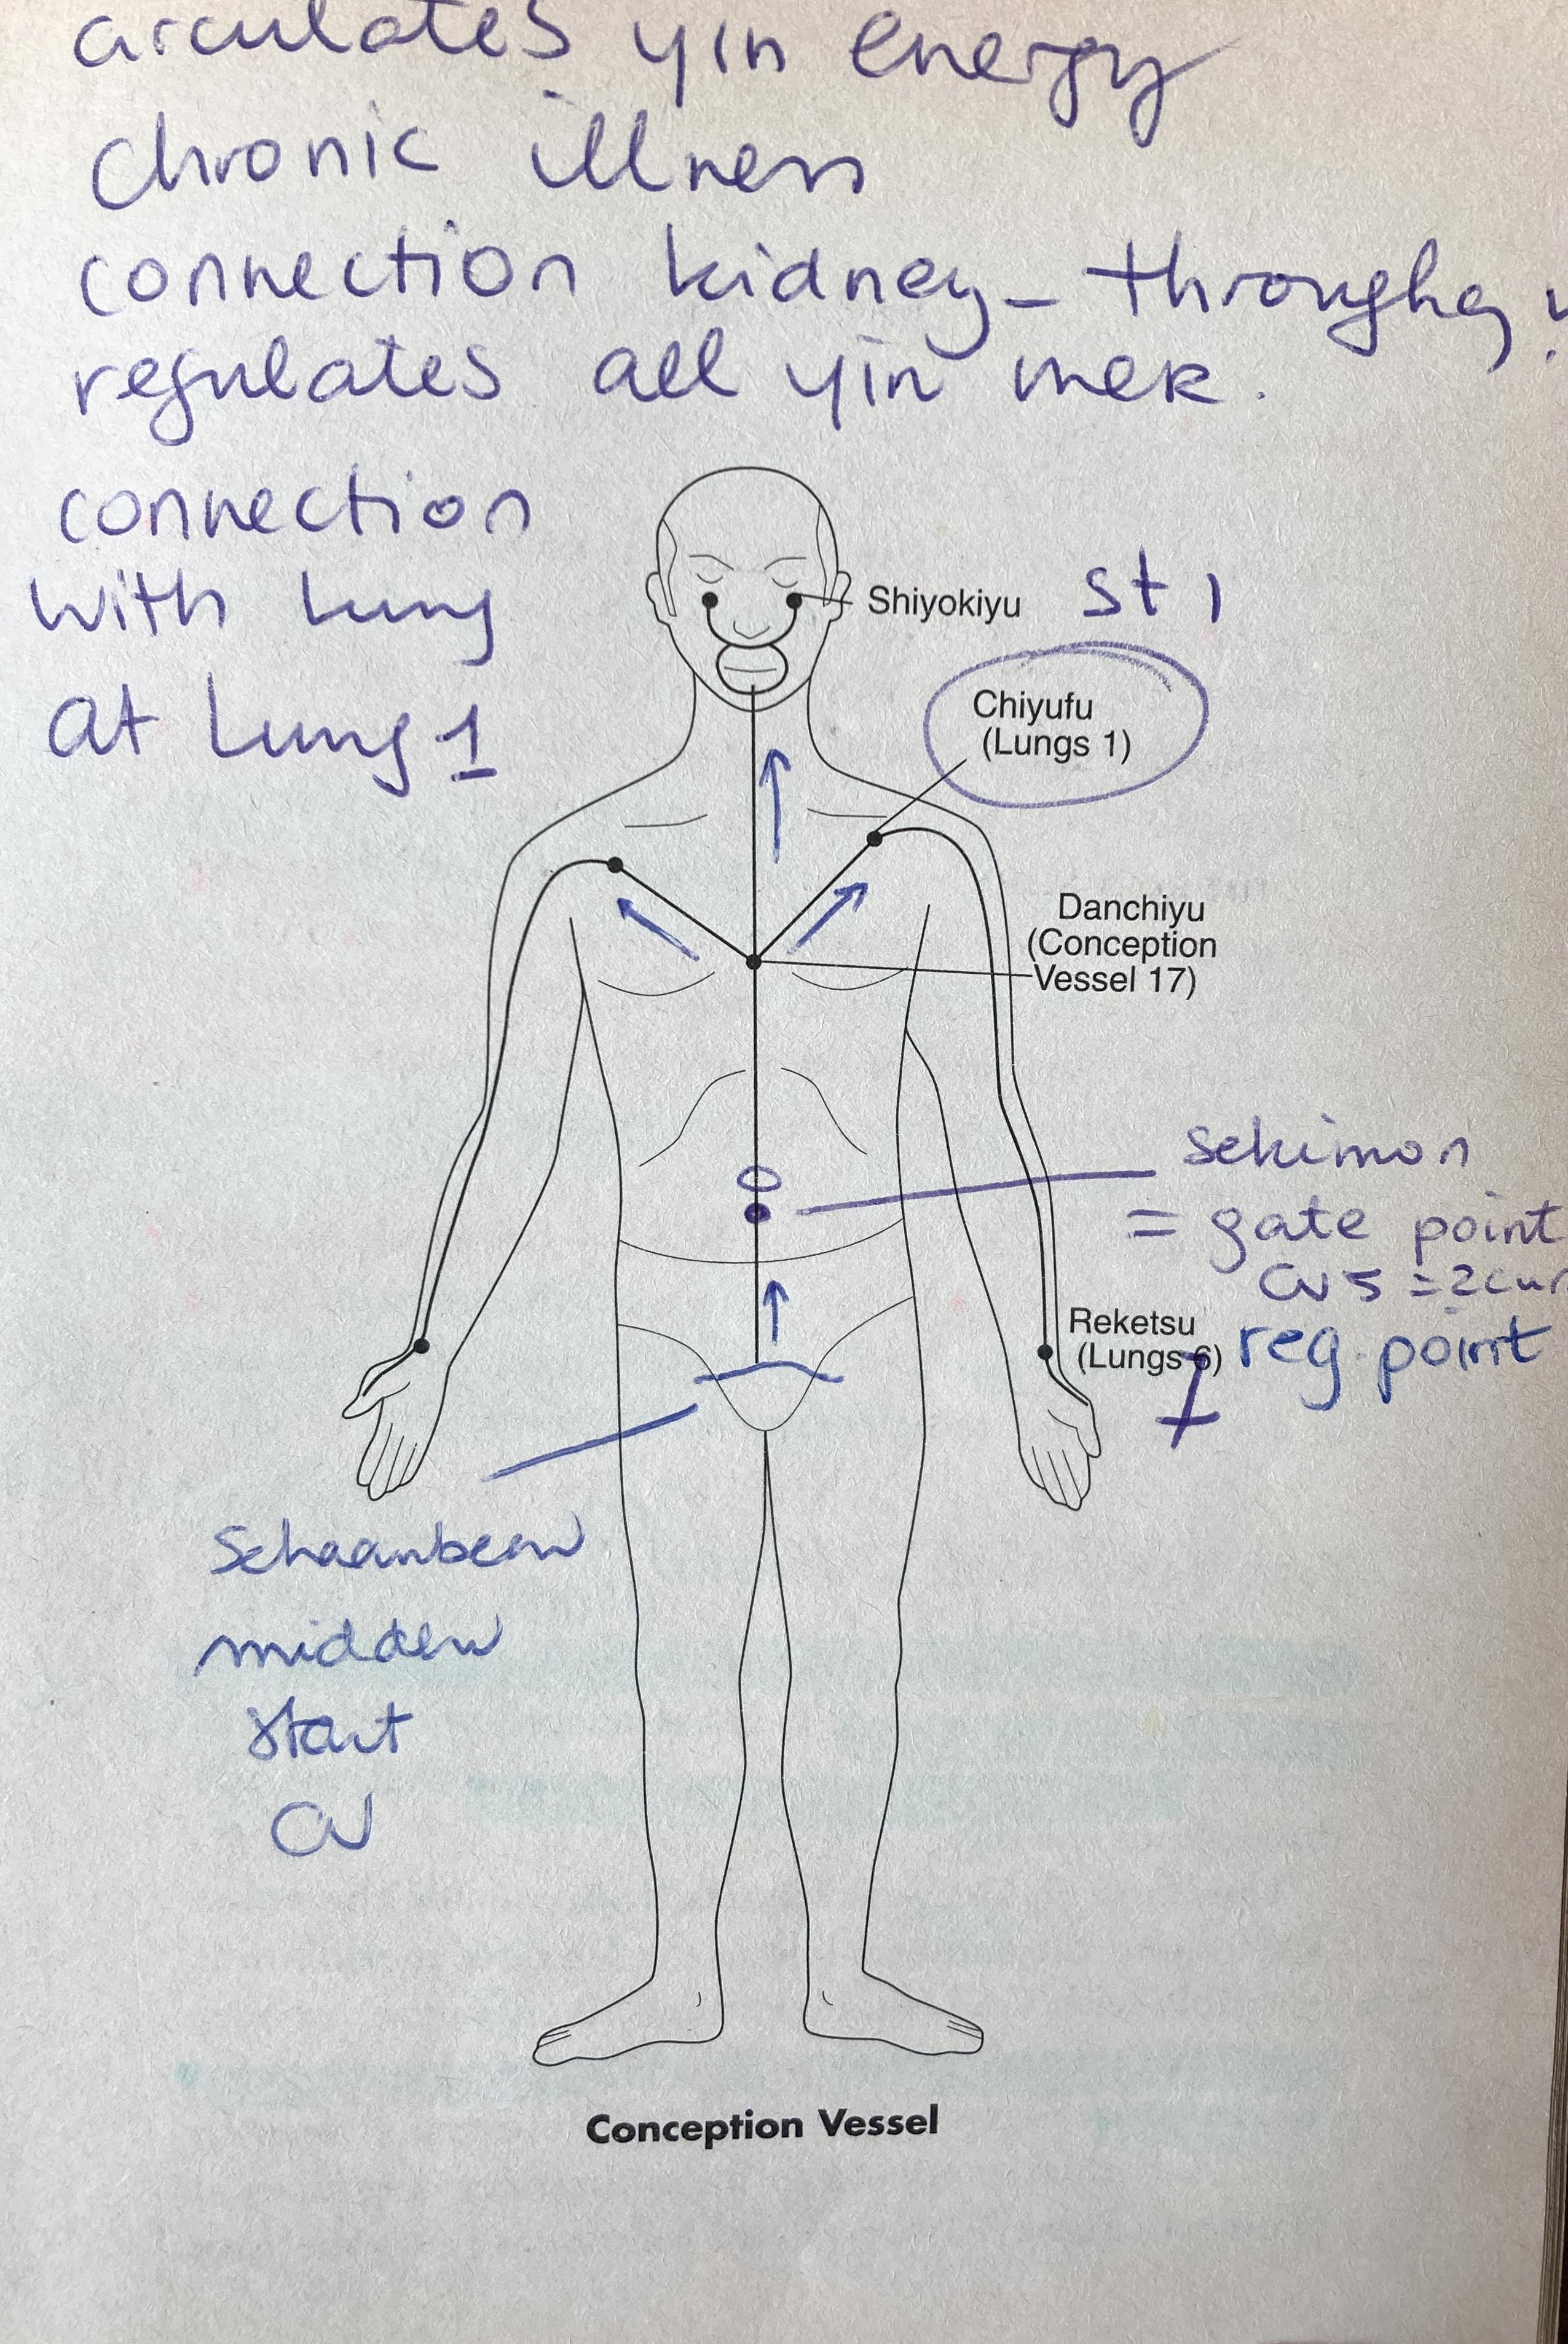 circulates yin energy
chronic illness
connection kidney - through
regulates all yin mer.
connection
with lung
at Lung 1
Shiyokiyu st 1
Chiyufu
(Lungs 1)
Danchiyu
(Conception
Vessel 17)
Sekimon
= gate point
CV 5 = 2 cun
Reketsu
(Lungs 6) reg. point
7
Schaambeen
midden
start
CV
Conception Vessel